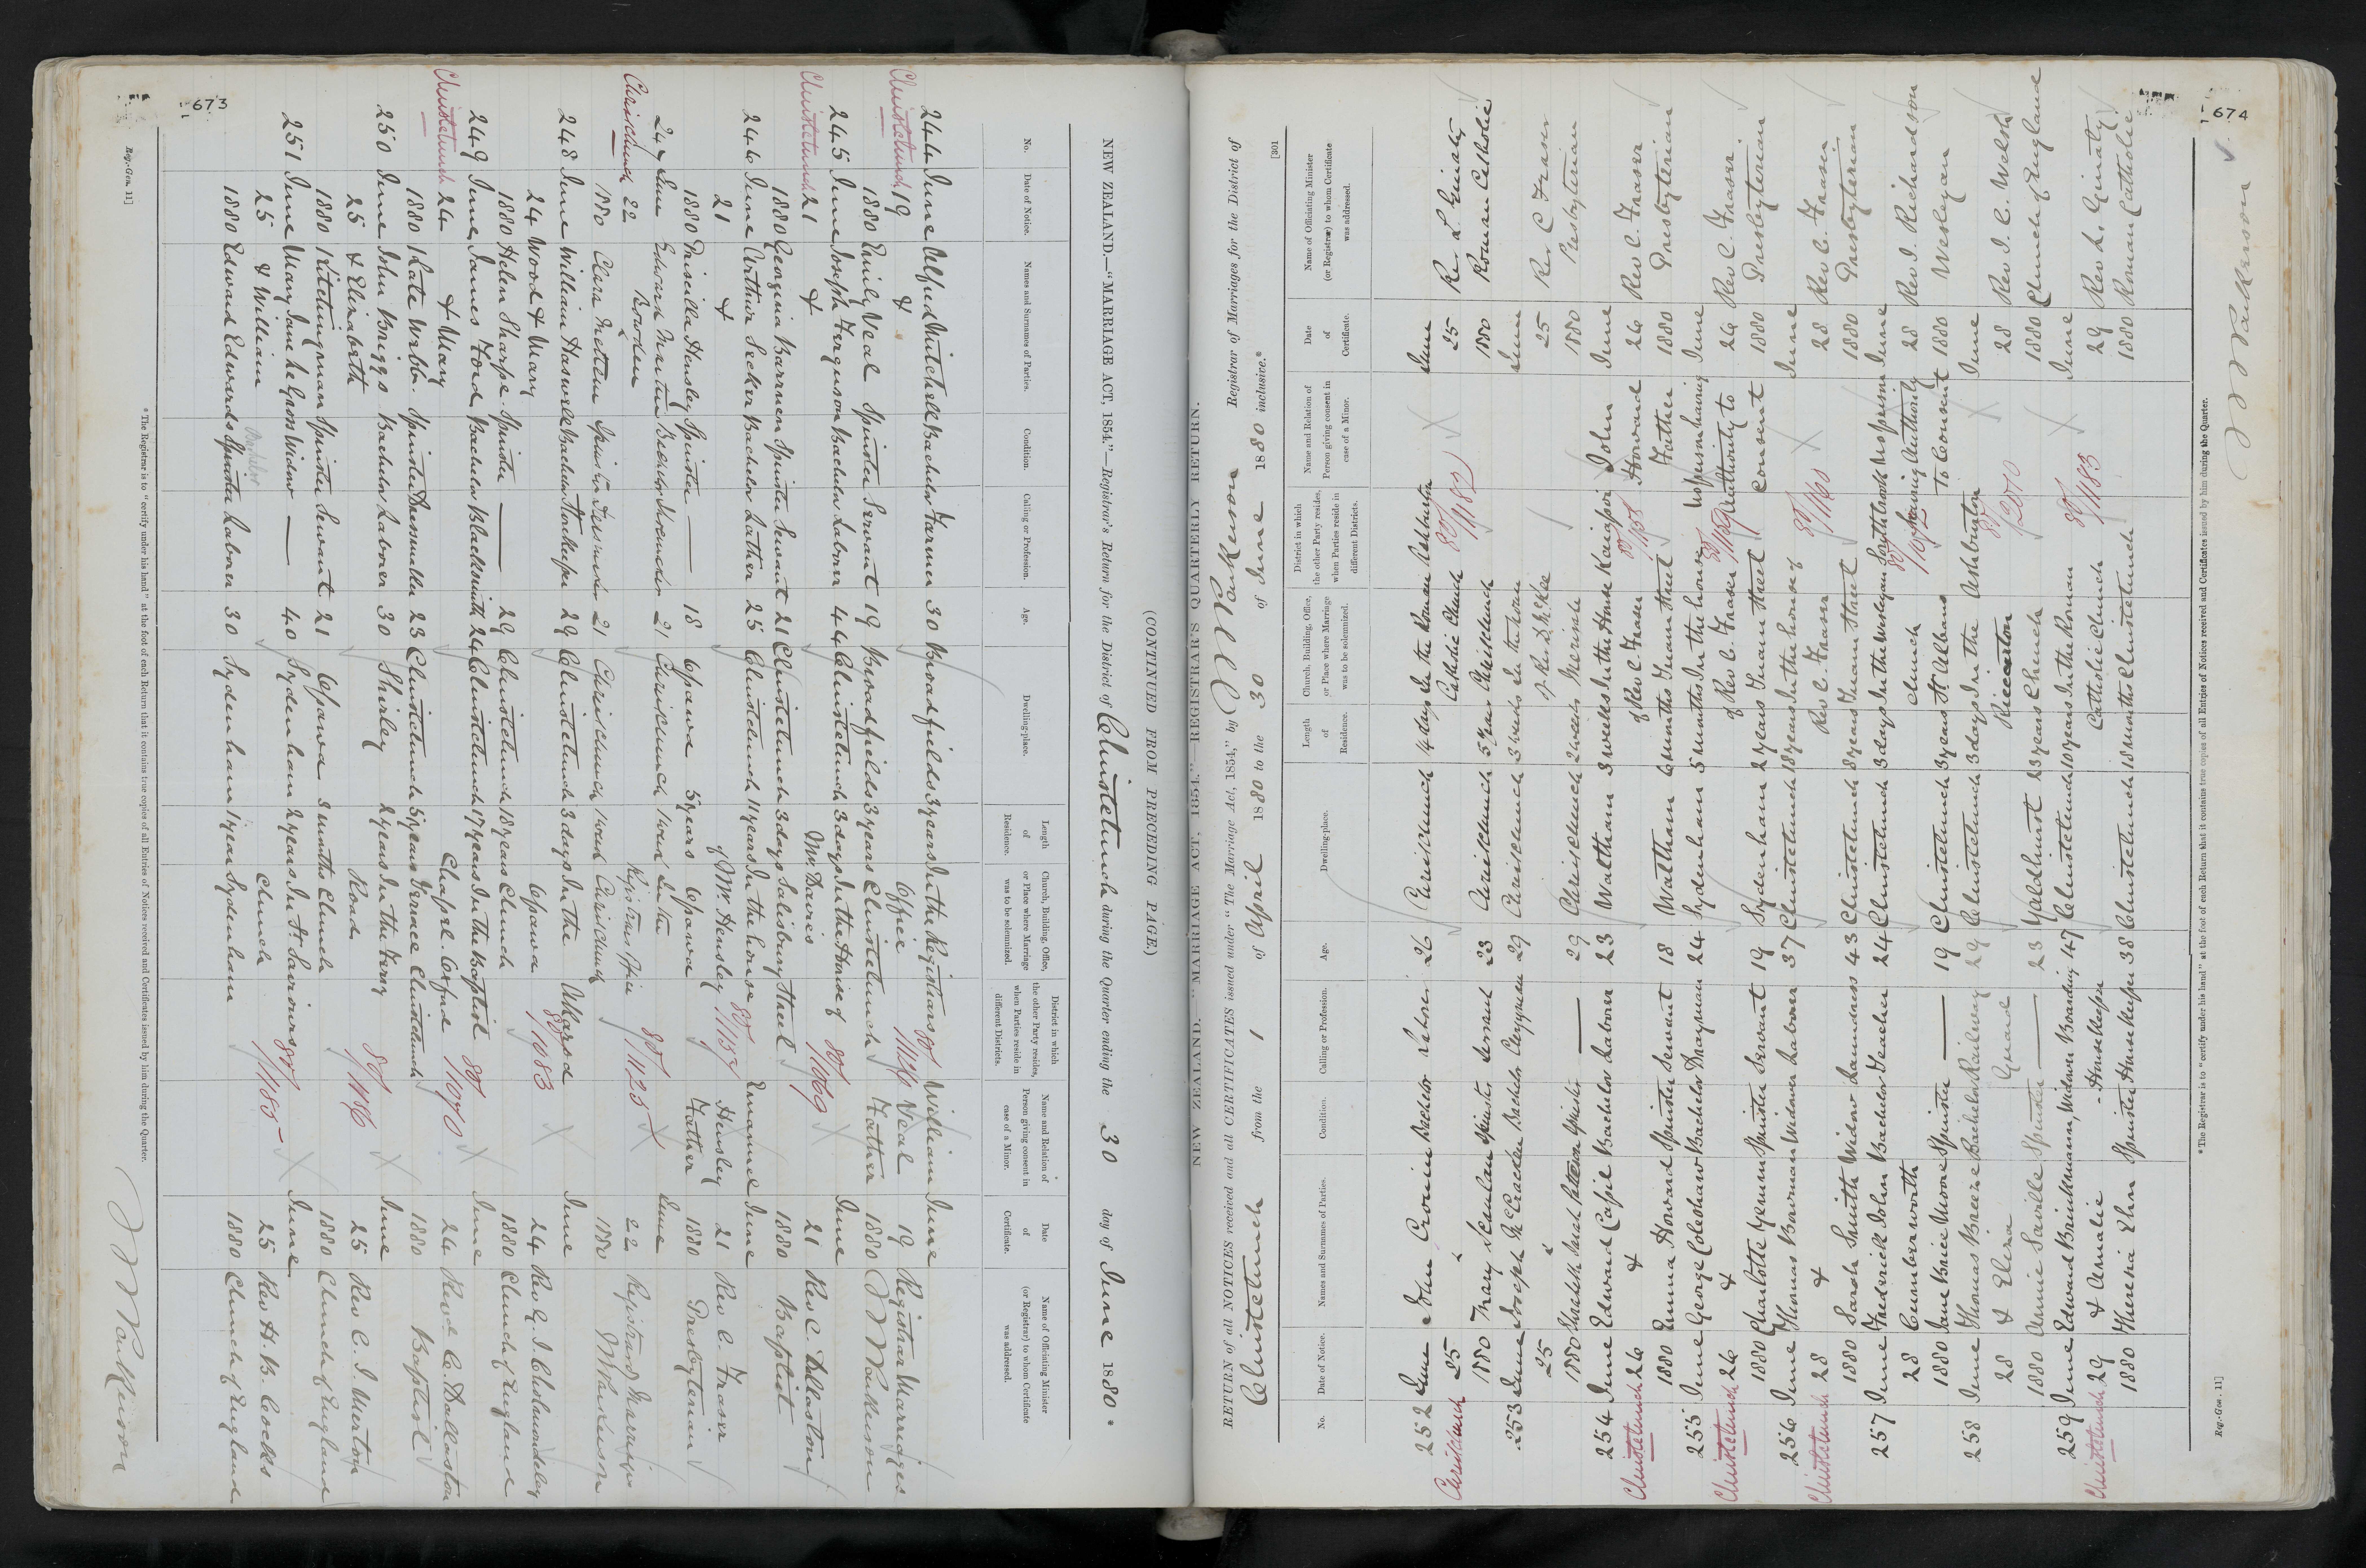 673
NEW ZEALAND.—"MARRIAGE ACT, 1854."—Registrar's Return for the District of Christchurch during the Quarter ending the 30 day of June 1880.
(CONTINUED FROM PRECEDING PAGE.)
No. Date of Notice. Names and Surnames of Parties. Condition. Calling or Profession. Age. Dwelling-place. Length of Residence. Church, Building, Office, or Place where Marriage was to be solemnized. District in which the other Party resides, when Parties reside in different Districts. Name and Relation of Person giving consent in case of a Minor. Date of Certificate. Name of Officiating Minister (or Registrar) to whom Certificate was addressed.
244 June Alfred Mitchell Bachelor Farmer 30 Broadfields 3 years In the Registrars 80/1136 William June
Christchurch 19 & Office Veal 19 Registrar Marriages
1880 Emily Veal Spinster Servant 19 Broadfields 3 years Christchurch Father 1880 Parkerson
245 June Joseph Ferguson Bachelor Laborer 44 Christchurch 3 days In the House of 80/1069 June
Christchurch 21 & Mr Davies 21 Rev C. Dallaston
1880 Georgina Barren Spinster Servant 21 Christchurch 3 days Salisbury Street 1880 Baptist
246 June Arthur Seeker Bachelor Lather 25 Christchurch 11 years In the house 80/1157 Emanuel June
21 & of Mr Hensley Hensley 21 Rev C. Fraser
1880 Priscilla Hensley Spinster — 18 Opawa 5 years Opawa Father 1880 Presbyterian
247 June Edward Bowden Bachelor 21 Christchurch 1 week In the 80/1135 June
Christchurch 22 Registrars Office 22 Registrar Marriages
1880 Clara Spinster 21 Christchurch 1 week Christchurch 1880 Parkerson
248 June William Haswell Bachelor Storekeeper 29 Christchurch 3 days In the Akaroa June
24 Wood & Mary Opawa 80/1083 24 Rev G. J. Cholmondeley
1880 Helen Sharpe Spinster — 29 Christchurch 18 years Church 1880 Church of England
249 June James Ford Bachelor Blacksmith 24 Christchurch 17 years In the Baptist 80/1070 June
Christchurch 24 & Mary Chapel Oxford 24 Revd C. Dallaston
1880 Kate Webb Spinster Dressmaker 23 Christchurch 5 years Terrace Christchurch 1880 Baptist
250 June John Briggs Bachelor Laborer 30 Shirley 2 years In the Ferry 80/1186 June
25 & Elizabeth Road 25 Rev C. J. Merton
1880 Kitchingman Spinster Servant 21 Opawa 3 months Church 1880 Church of England
251 June Mary Jane Widow — 40 Sydenham 2 years In St Saviours 80/1185 June
25 & William Church 25 Rev H. B. Cocks
1880 Edward Edwards Bachelor Laborer 30 Sydenham 1 year Sydenham 1880 Church of England
Parkerson
* The Registrar is to "certify under his hand" at the foot of each Return that it contains true copies of all Entries of Notices received and Certificates issued by him during the Quarter.
Reg.-Gen. 11]
674
[301
NEW ZEALAND. "MARRIAGE ACT, 1854." REGISTRAR'S QUARTERLY RETURN.
RETURN of all NOTICES received and all CERTIFICATES issued under "The Marriage Act, 1854," by Parkerson Registrar of Marriages for the District of
Christchurch from the 1 of April 1880 to the 30 of June 1880 inclusive.*
No. Date of Notice. Names and Surnames of Parties. Condition. Calling or Profession. Age. Dwelling-place. Length of Residence. Church, Building, Office, or Place where Marriage was to be solemnized. District in which the other Party resides, when Parties reside in different Districts. Name and Relation of Person giving consent in case of a Minor. Date of Certificate. Name of Officiating Minister (or Registrar) to whom Certificate was addressed.
252 June John Cronin Bachelor Laborer 26 Christchurch 4 days In the Roman Ashburton June
Christchurch 25 & Catholic Church 80/1182 25 Rev L Ginaty
1880 Mary Scanlan Spinster Servant 23 Christchurch 5 years Christchurch 1880 Roman Catholic
253 June Joseph McCracken Bachelor Clergyman 29 Christchurch 3 weeks In the house June
25 & of Rev D. McKee 25 Rev C Fraser
1880 Elizabeth Sarah Paterson Spinster — 29 Christchurch 2 weeks Merivale 1880 Presbyterian
254 June Edward Capil Bachelor Laborer 23 Waltham 3 weeks In the House Kaiapoi John June
Christchurch 26 & of Rev C. Fraser 80/1158 Howard 26 Rev C. Fraser
1880 Emma Howard Spinster Servant 18 Waltham 6 months Tuam Street Father 1880 Presbyterian
255 June George Coleshaw Bachelor Drayman 24 Sydenham 5 months In the house No person having June
Christchurch 26 & of Rev C. Fraser 80/1159 Authority to 26 Rev C. Fraser
1880 Charlotte Spinster Servant 19 Sydenham 2 years Tuam Street consent 1880 Presbyterian
256 June Thomas Bowman Widower Laborer 37 Christchurch 18 years In the house of June
Christchurch 28 & Rev C. Fraser 80/1160 28 Rev C. Fraser
1880 Sarah Smith Widow Laundress 43 Christchurch 8 years Tuam Street 1880 Presbyterian
257 June Frederick John Bachelor Teacher 24 Christchurch 3 days In the Wesleyan Southbrook No person June
28 Cumberworth Church 80/1092 having Authority 28 Rev I. Richardson
1880 Jane Brice Moore Spinster — 19 Christchurch 3 years St Albans To Consent 1880 Wesleyan
258 June Thomas Breeze Bachelor Railway 29 Christchurch 3 days In the Ashburton June
28 & Eliza Guard Riccarton 80/1200 28 Rev J. C. Welsh
1880 Annie Saville Spinster — 23 Yaldhurst 23 years Church 1880 Church of England
259 June Edward Brinkmann Widower Boarding 47 Christchurch 10 years In the Roman June
Christchurch 29 & Amalie Housekeeper Catholic Church 80/1183 29 Rev L. Ginaty
1880 Theresia Ehn Spinster Housekeeper 38 Christchurch 18 months Christchurch 1880 Roman Catholic
Parkerson
*The Registrar is to "certify under his hand" at the foot of each Return that it contains true copies of all Entries of Notices received and Certificates issued by him during the Quarter.
Reg.-Gen. 11]